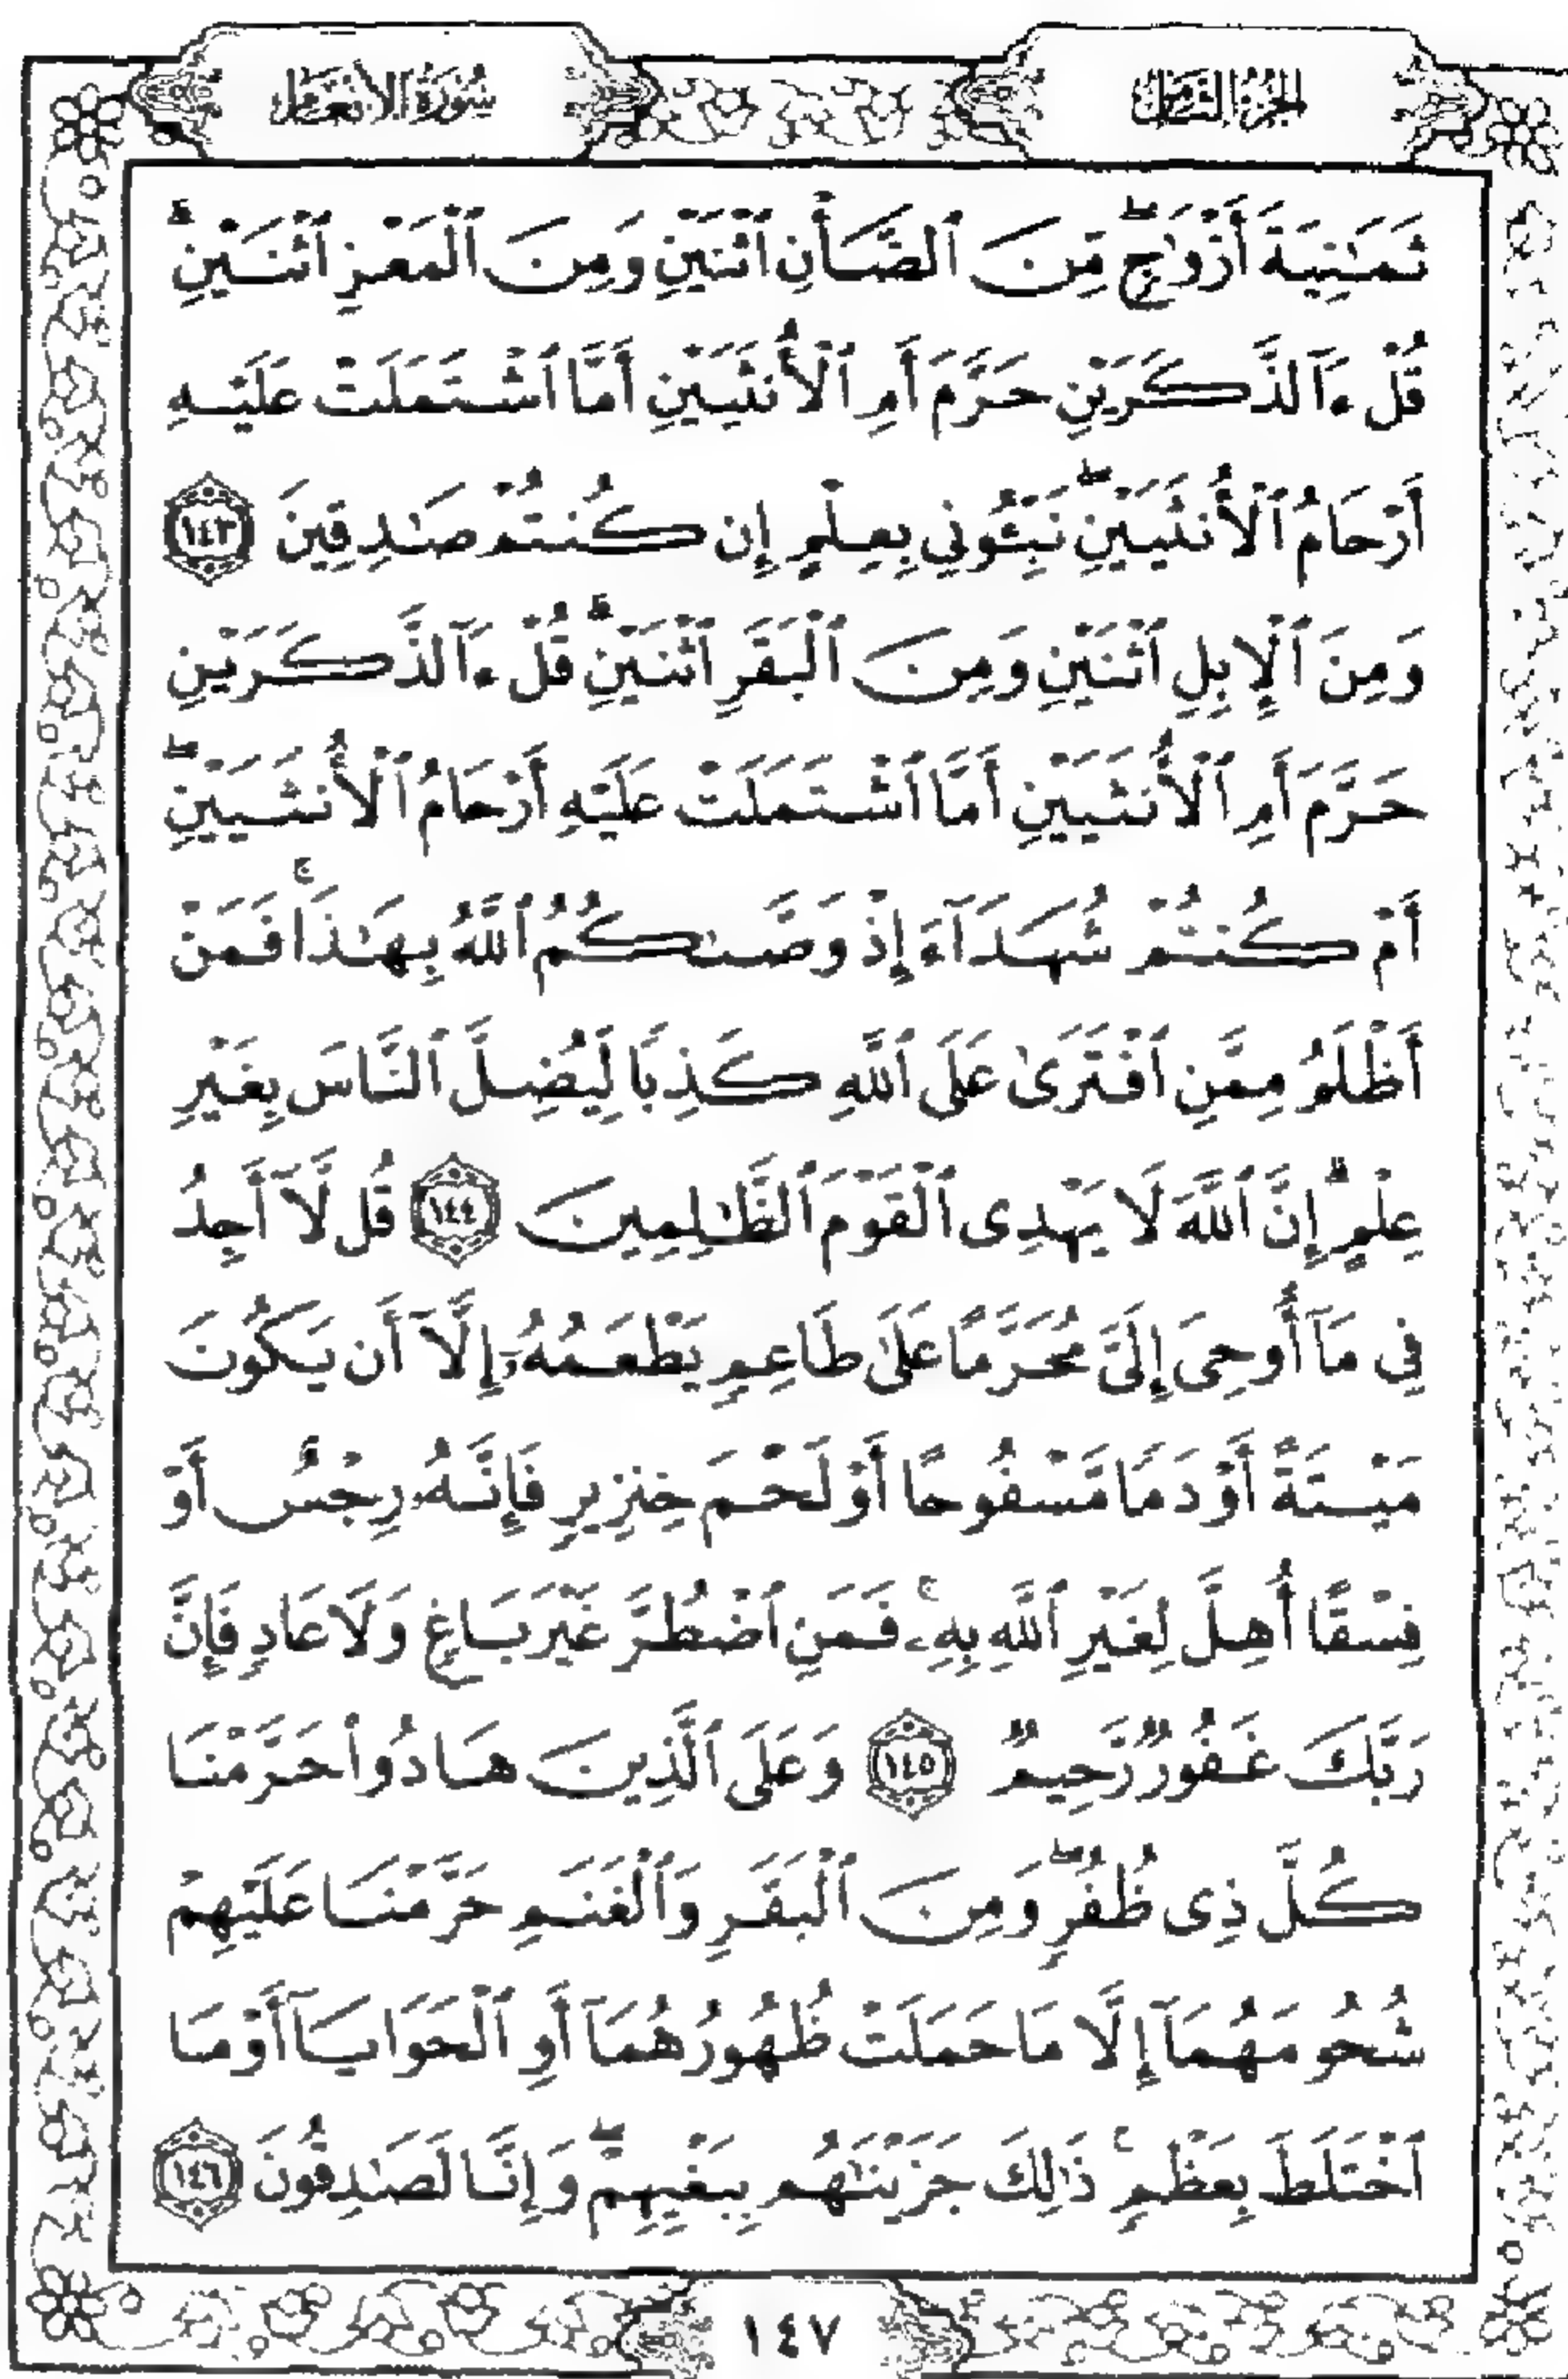 الجزء الثامن
سورة الأنعام
ثَمَٰنِيَةَ أَزْوَٰجٍۖ مِّنَ ٱلضَّأْنِ ٱثْنَيْنِ وَمِنَ ٱلْمَعْزِ ٱثْنَيْنِۗ
قُلْ ءَآلذَّكَرَيْنِ حَرَّمَ أَمِ ٱلْأُنثَيَيْنِ أَمَّا ٱشْتَمَلَتْ عَلَيْهِ
أَرْحَامُ ٱلْأُنثَيَيْنِۖ نَبِّـُٔونِي بِعِلْمٍ إِن كُنتُمْ صَٰدِقِينَ ١٤٣
وَمِنَ ٱلْإِبِلِ ٱثْنَيْنِ وَمِنَ ٱلْبَقَرِ ٱثْنَيْنِۗ قُلْ ءَآلذَّكَرَيْنِ
حَرَّمَ أَمِ ٱلْأُنثَيَيْنِ أَمَّا ٱشْتَمَلَتْ عَلَيْهِ أَرْحَامُ ٱلْأُنثَيَيْنِۖ
أَمْ كُنتُمْ شُهَدَآءَ إِذْ وَصَّىٰكُمُ ٱللَّهُ بِهَٰذَاۚ فَمَنْ
أَظْلَمُ مِمَّنِ ٱفْتَرَىٰ عَلَى ٱللَّهِ كَذِبًا لِّيُضِلَّ ٱلنَّاسَ بِغَيْرِ
عِلْمٍۗ إِنَّ ٱللَّهَ لَا يَهْدِى ٱلْقَوْمَ ٱلظَّٰلِمِينَ ١٤٤ قُل لَّآ أَجِدُ
فِي مَآ أُوحِىَ إِلَىَّ مُحَرَّمًا عَلَىٰ طَاعِمٍ يَطْعَمُهُۥٓ إِلَّآ أَن يَكُونَ
مَيْتَةً أَوْ دَمًا مَّسْفُوحًا أَوْ لَحْمَ خِنزِيرٍ فَإِنَّهُۥ رِجْسٌ أَوْ
فِسْقًا أُهِلَّ لِغَيْرِ ٱللَّهِ بِهِۦۚ فَمَنِ ٱضْطُرَّ غَيْرَ بَاغٍ وَلَا عَادٍ فَإِنَّ
رَبَّكَ غَفُورٌ رَّحِيمٌ ١٤٥ وَعَلَى ٱلَّذِينَ هَادُوا۟ حَرَّمْنَا
كُلَّ ذِى ظُفُرٍۖ وَمِنَ ٱلْبَقَرِ وَٱلْغَنَمِ حَرَّمْنَا عَلَيْهِمْ
شُحُومَهُمَآ إِلَّا مَا حَمَلَتْ ظُهُورُهُمَآ أَوِ ٱلْحَوَايَآ أَوْ مَا
ٱخْتَلَطَ بِعَظْمٍۚ ذَٰلِكَ جَزَيْنَٰهُم بِبَغْيِهِمْۖ وَإِنَّا لَصَٰدِقُونَ ١٤٦
١٤٧